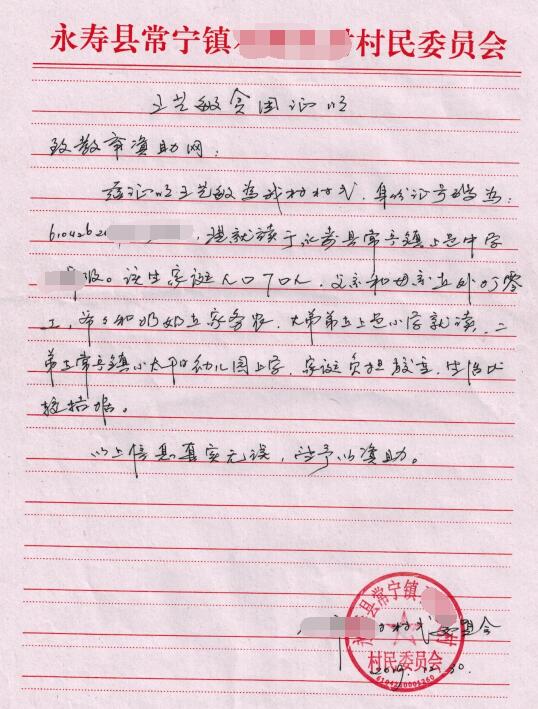 永寿县常宁镇 村民委员会
王艺敏贫困证明
致教育资助网:
兹证明王艺敏为我村村民,身份证号码为:
6104262 ,现就读于永寿县常宁镇上邑中学
级。该生家庭人口7口人,父亲和母亲在外打零
工,爷爷和奶奶在家务农,大弟弟在上邑小学就读,二
弟在常宁镇小太阳幼儿园上学,家庭负担较重,生活比
较拮据。
以上信息真实无误,望予以资助。
永寿县常宁镇
村民委员会
村民委员会
2019.12.30.